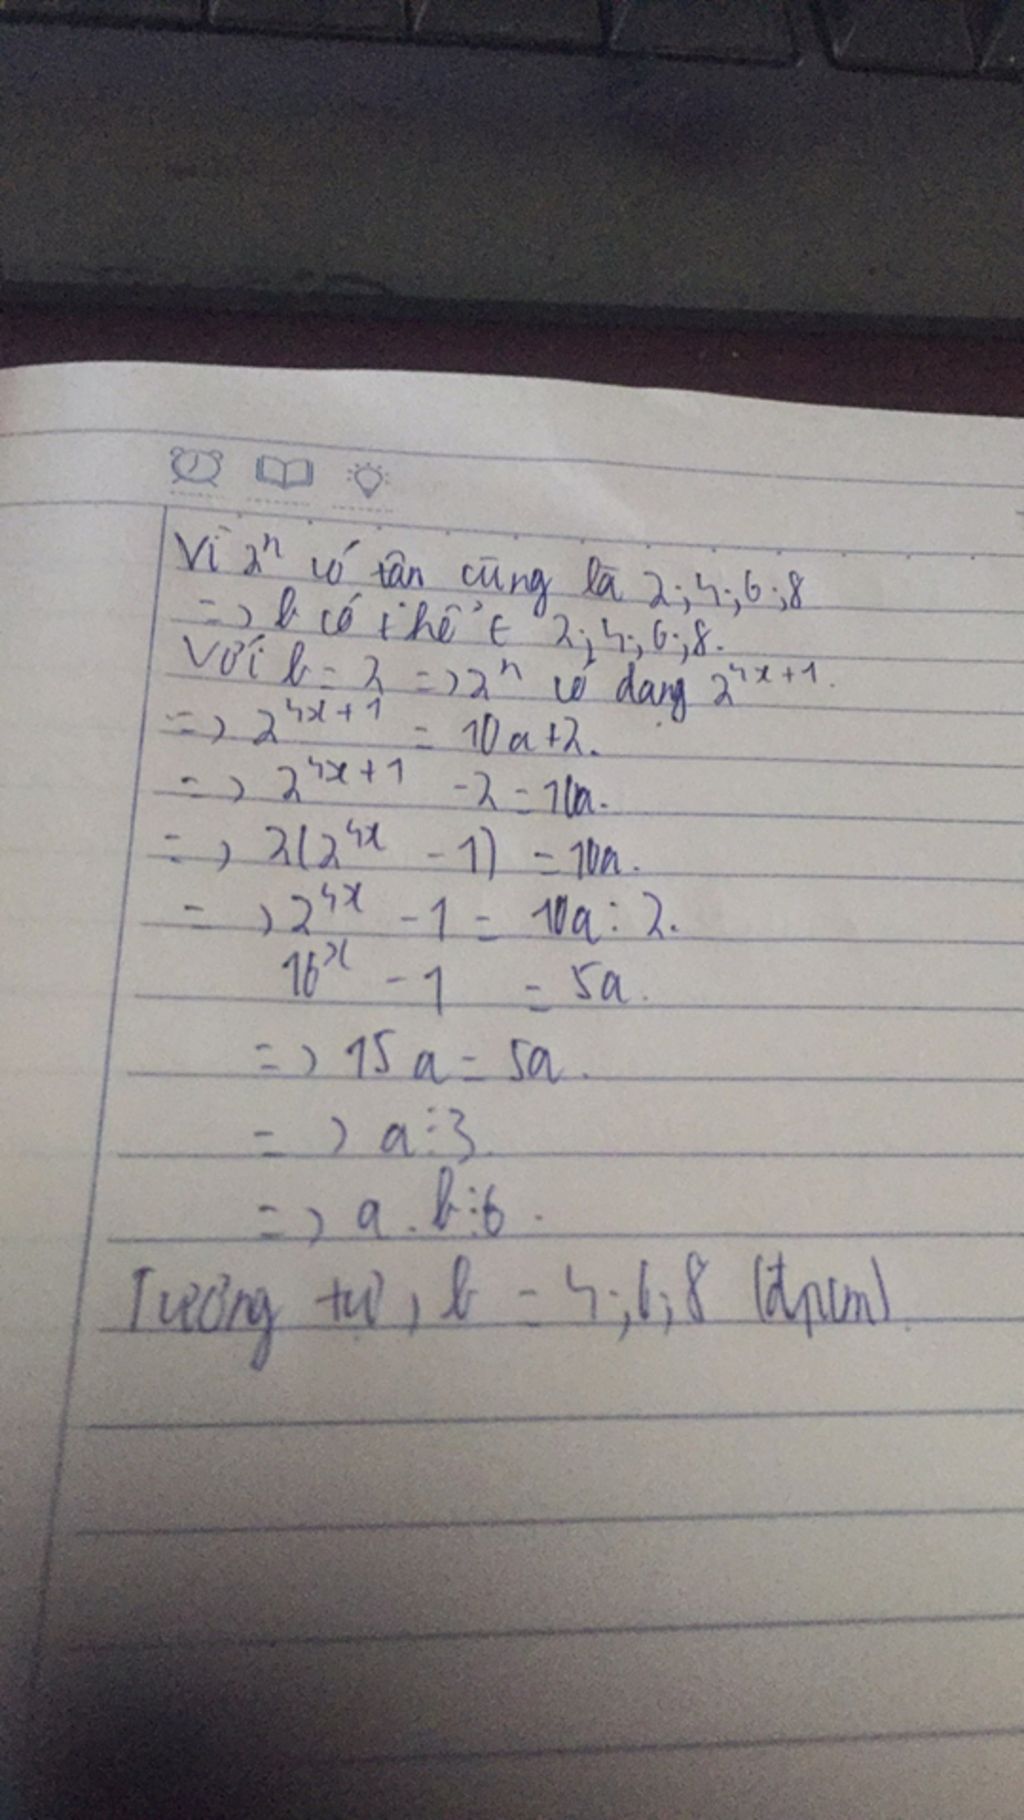 Vì 2ⁿ có tận cùng là 2;4;6;8
=> b có thể ∈ 2;4;6;8.
Với b = 2 => 2ⁿ có dạng 2^{4x+1}.
=> 2^{4x+1} = 10a+2.
=> 2^{4x+1} - 2 = 10a.
=> 2(2^{4x} - 1) = 10a.
=> 2^{4x} - 1 = 10a : 2.
16^x - 1 = 5a.
=> 15a = 5a.
=> a ⋮ 3
=> a . b ⋮ 6.
Tương tự, b = 4;6;8 (đpcm).